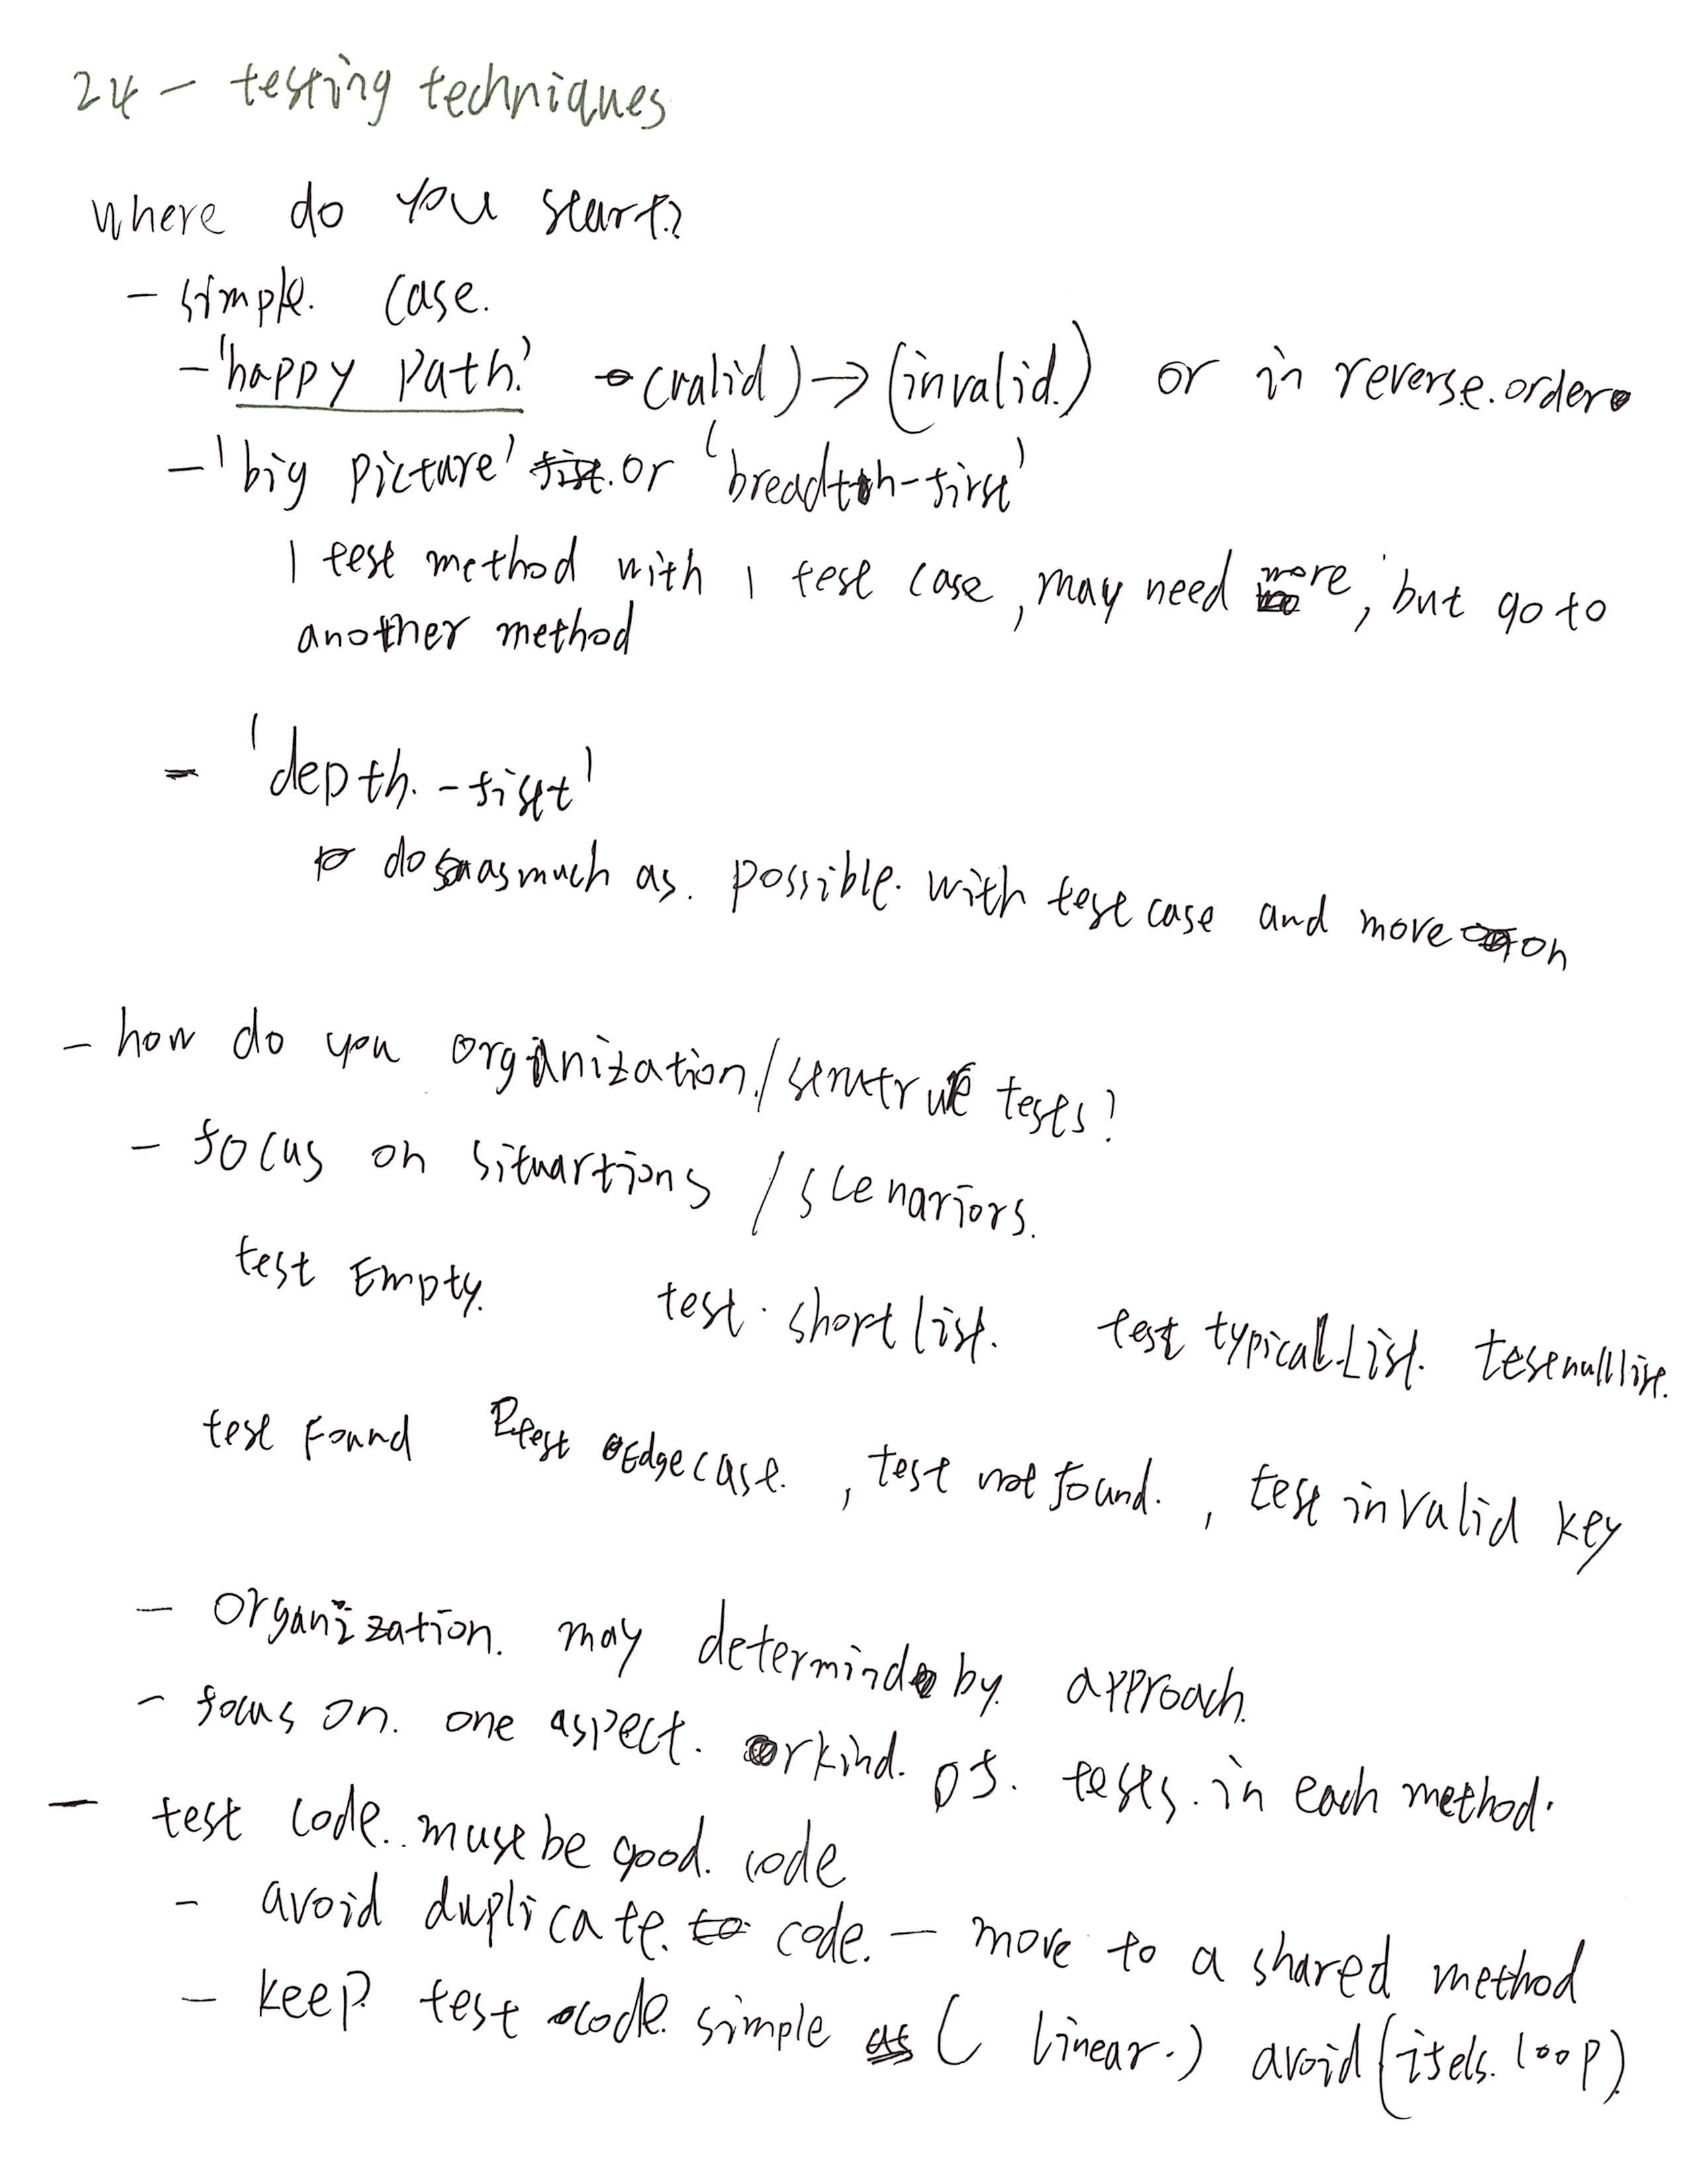 24 - testing techniques
where do you start?
- simple. case.
- 'happy path.' (valid) → (invalid.) or in reverse.order
- 'big picture' or 'breadth-first'
1 test method with 1 test case, may need more, but go to
another method
- 'depth.-first'
do as much as. possible. with test case and move on
- how do you organization./structure tests?
- focus on situartions / scenariors.
test Empty. test. short list. test typical.List. test null list.
test Found test Edge case. , test not found. , test invalid key
- organization. may determind by. approach.
- focus on. one aspect. or kind. of. tests. in each method.
- test code.. must be good. code
- avoid duplicate. code. - move to a shared method
- keep test code. simple ( linear.) avoid (ifels. loop)